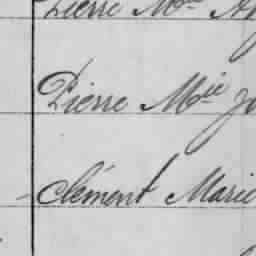 Pierre Mie
Pierre Mie
Clément Marie